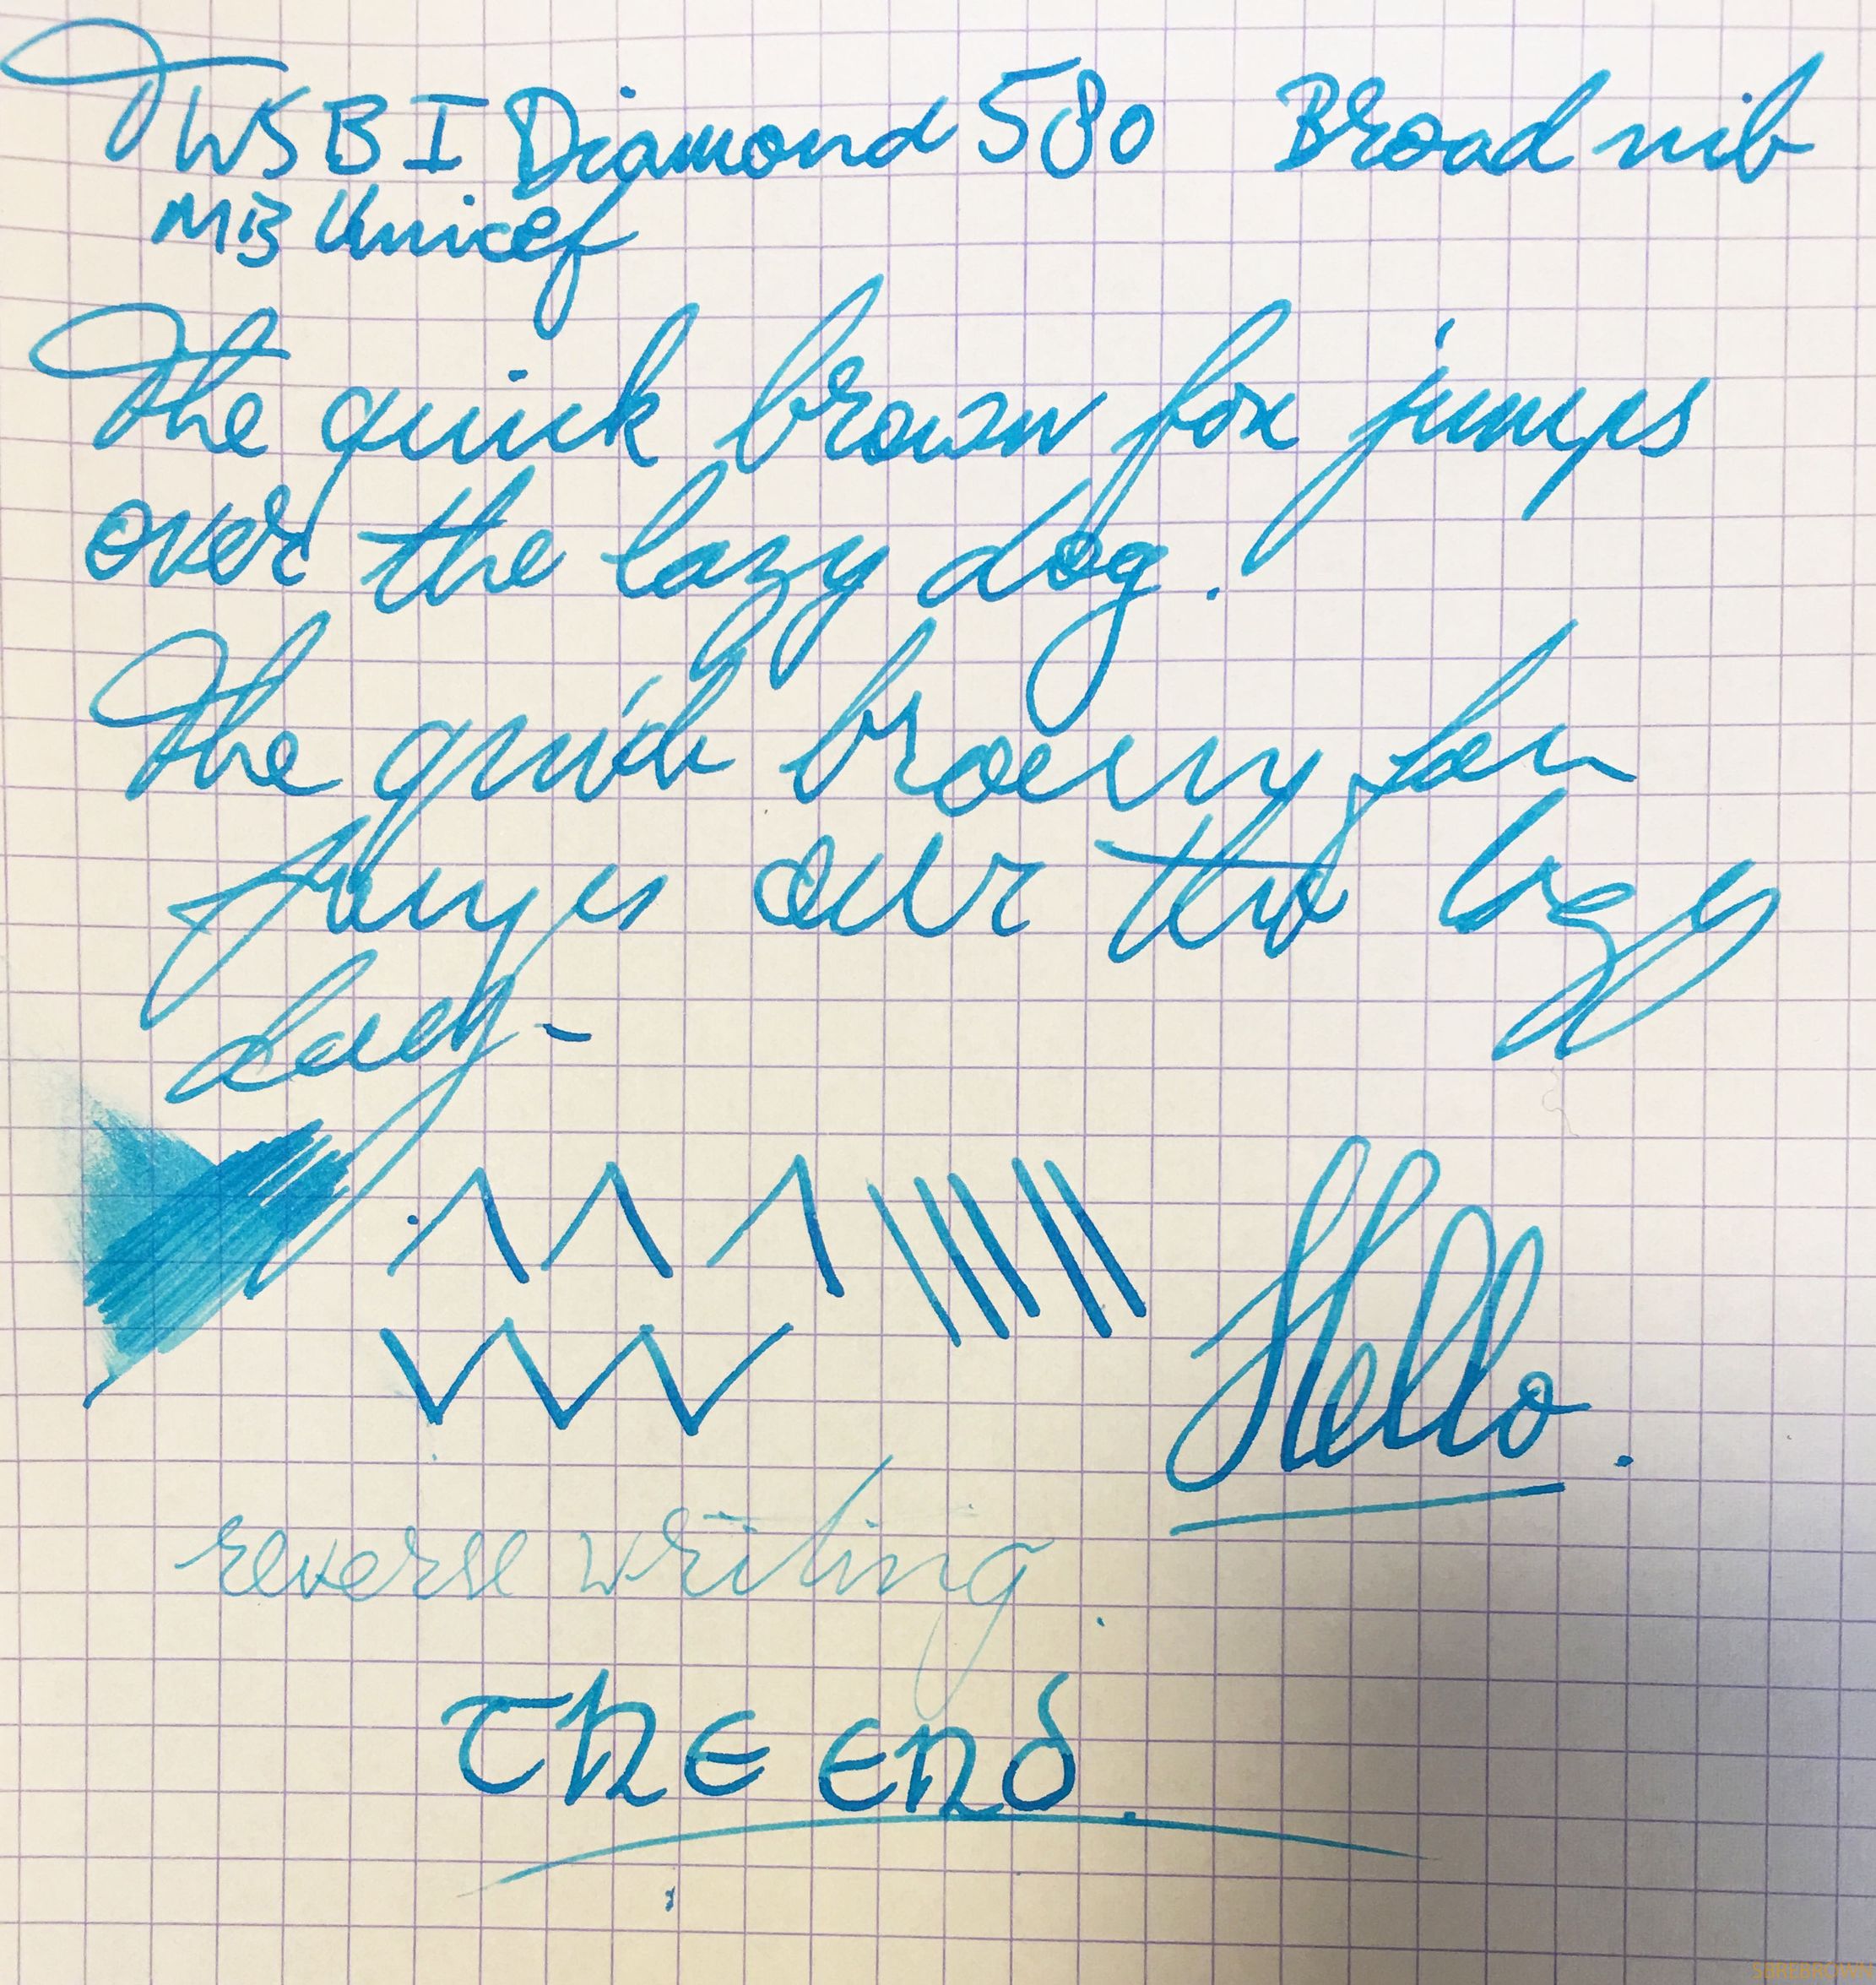 TWSBI Diamond 580 Broad nib
MB Unicef
The quick brown fox jumps
over the lazy dog.
The quick brown fox
jumps over the lazy
dog-
Hello.
reverse writing.
The end.
SBREBROWN